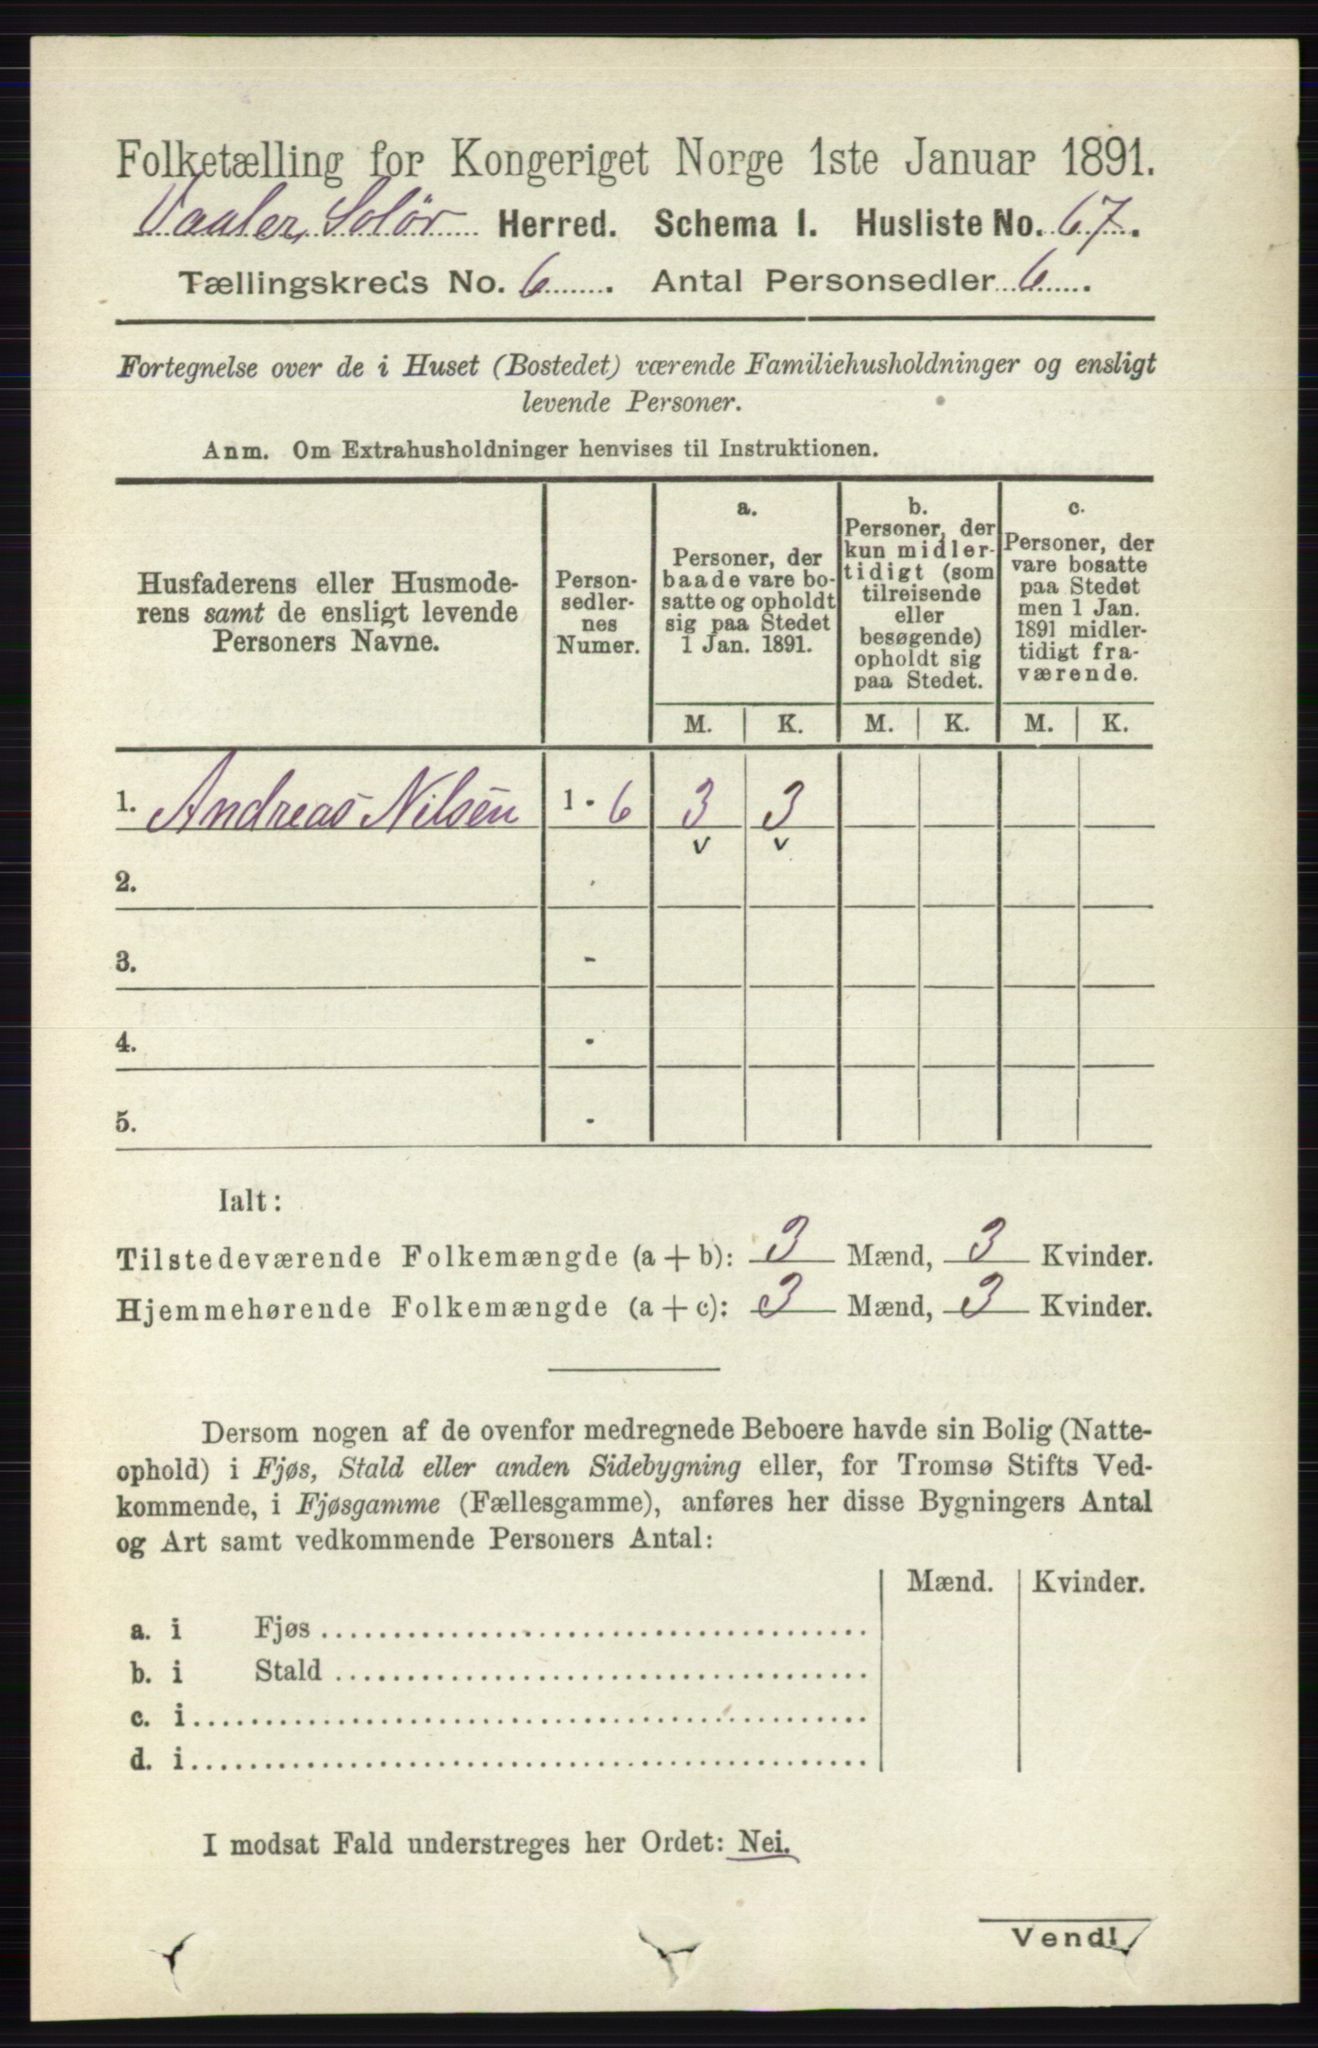 Folketælling for Kongeriget Norge 1ste Januar 1891.
Vaaler, Solør Herred. Schema I. Husliste No. 67.
Tællingskreds No. 6. Antal Personsedler 6.
Fortegnelse over de i Huset (Bostedet) værende Familiehusholdninger og ensligt
levende Personer.
Anm. Om Extrahusholdninger henvises til Instruktionen.
Husfaderens eller Husmode-
rens samt de ensligt levende
Personers Navne.
Person-
sedler-
nes
Numer.
a.
Personer, der
baade vare bo-
satte og opholdt
sig paa Stedet
1 Jan. 1891.
b.
Personer, der
kun midler-
tidigt (som
tilreisende
eller
besøgende)
opholdt sig
paa Stedet.
c.
Personer, der
vare bosatte
paa Stedet
men 1 Jan.
1891 midler-
tidigt fra-
værende.
M. K. M. K. M. K.
1. Andreas Nilsen 1 - 6 3 3
v v
2. -
3. -
4. -
5. -
Ialt:
Tilstedeværende Folkemængde (a + b): 3 Mænd, 3 Kvinder.
Hjemmehørende Folkemængde (a + c): 3 Mænd, 3 Kvinder.
Dersom nogen af de ovenfor medregnede Beboere havde sin Bolig (Natte-
ophold) i Fjøs, Stald eller anden Sidebygning eller, for Tromsø Stifts Ved-
kommende, i Fjøsgamme (Fællesgamme), anføres her disse Bygningers Antal
og Art samt vedkommende Personers Antal:
Mænd. Kvinder.
a. i Fjøs
b. i Stald
c. i
d. i
I modsat Fald understreges her Ordet: Nei.
Vend!